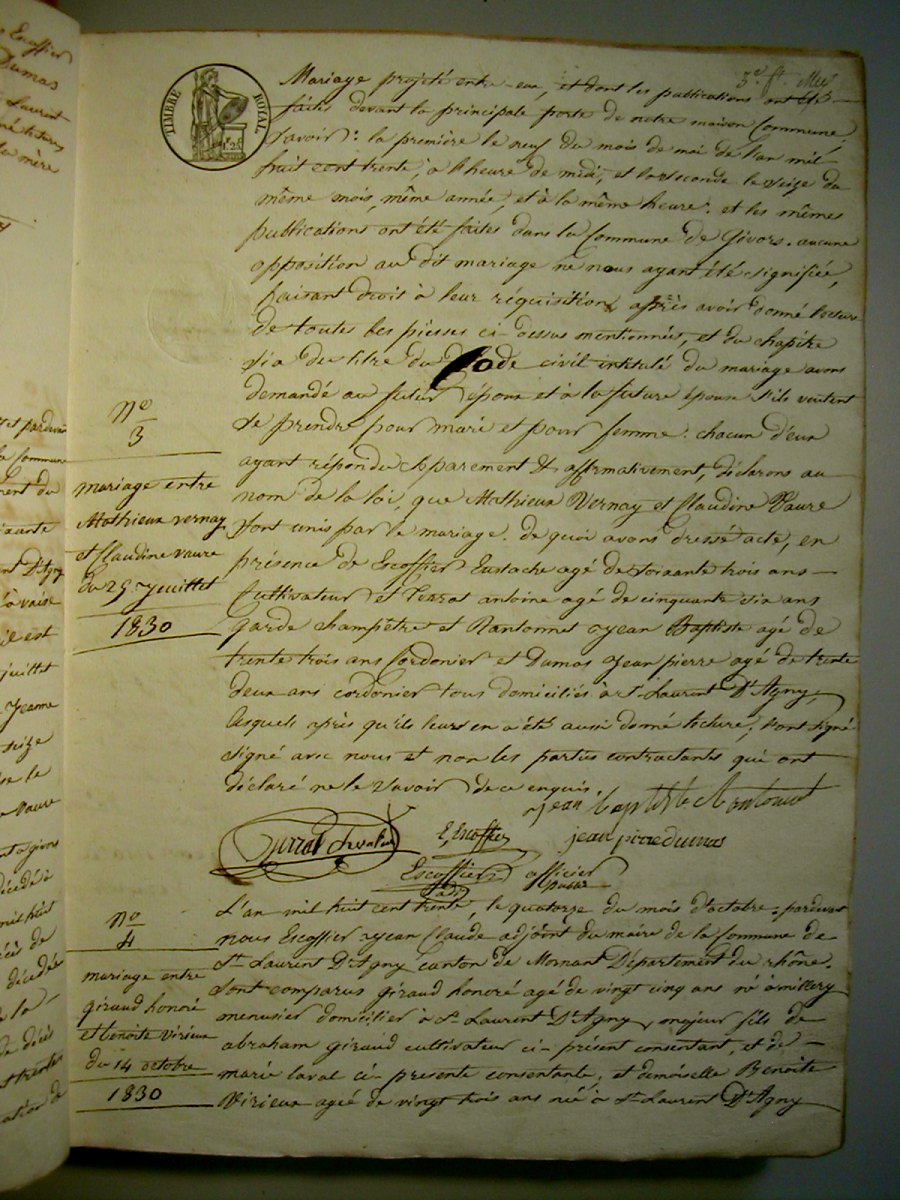 Escoffier
Dumas
Laurent
la mère
TIMBRE ROYAL
1.25
3e. ft.
Mariage projeté entre eux, et dont les publications ont été
faites devant la principale porte de notre maison Commune
Savoir: la première le neuf du mois de mai de l'an mil
huit cent trente, à l'heure de midi, et la seconde le seize du
même mois, même année, et à la même heure. et les mêmes
publications ont été faites dans la Commune de Givors. aucune
opposition au dit mariage ne nous ayant été signifiée,
faisant droit à leur réquisition après avoir donné lecture
de toutes les piesses ci-dessus mentionnées, et du chapitre
six du titre du Code civil intitulé du mariage avons
demandé au futur époux et à la future épouse s'ils veulent
se prendre pour mari et pour femme. chacun d'eux
ayant répondu separement & affirmativement, déclarons au
nom de la loi, que Mathieux Vernay et Claudine Vaure
sont unis par le mariage. de quoi avons dressé acte, en
présence de Escoffier Eustache agé de soixante trois ans
Cultivateur et antoine agé de cinquante six ans
garde champêtre et Jean Baptiste agé de
trente trois ans Cordonier et Dumas Jean pierre agé de trente
deux ans cordonier tous domiciliés à St. Laurent D'Agny,
lesquels après qu'ils leurs en a été aussi donné lecture, ont signé
signé avec nous et non les parties contractantes qui ont
déclaré ne le savoir de ce enquis
jean baptiste
E, Escoffier
jean pierre dumas
Escoffier officier
adj
No
3
mariage entre
Mathieux vernay
et Claudine vaure
du 25 Juillet
1830
No
4
mariage entre
giraud honoré
et benoite Virieux
du 14 octobre
1830
L'an mil huit cent trente, le quatorze du mois d'octobre, pardevant
nous Escoffier Jean Claude adjoint du maire de la Commune de
St. Laurent D'Agny canton de Mornant Département du rhône.
Sont comparus giraud honoré agé de vingt cinq ans né à millery
menusier domicilier à St. Laurent D'Agny, majeur fils de
abraham giraud cultivateur ci-présent consentant, et de
marie laval ci-presente consentante, et demoiselle Benoite
Virieux ageé de vingt trois ans neé à St. Laurent D'Agny